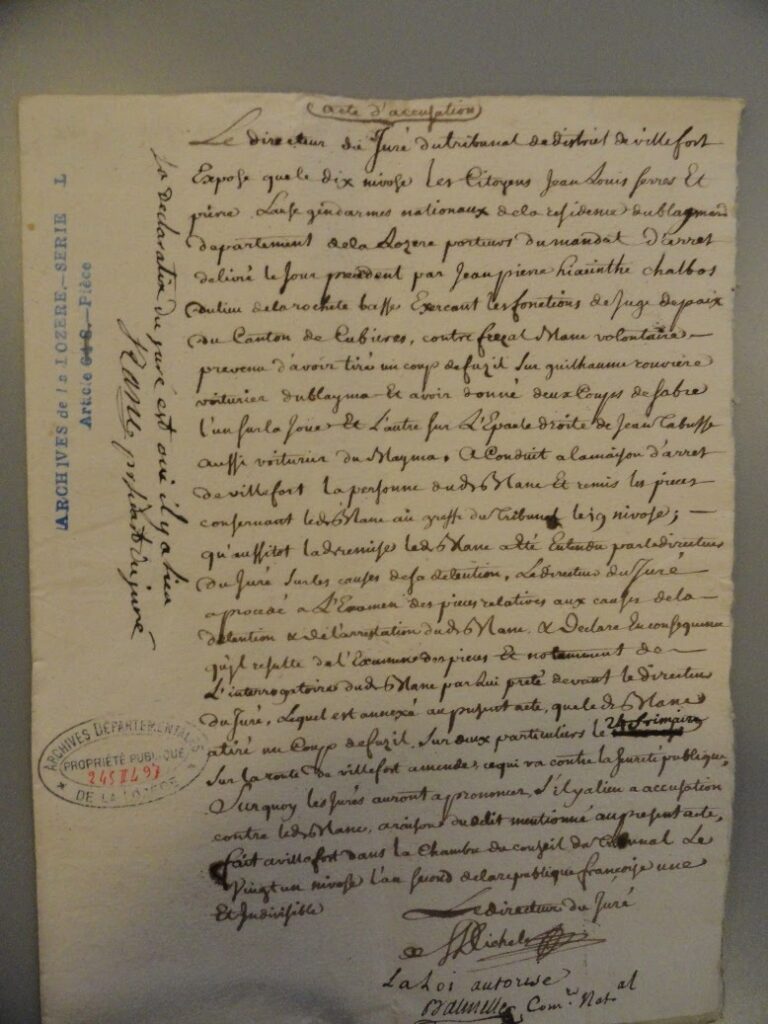 acte d'accusation
Le directeur du Juré du tribunal de district de villefort
Expose que le dix nivose les Citoyens Jean Louis serres Et
pierre Lause gendarmes nationaux de la residence du blaymard
departement de la Lozere porteurs du mandat D'arret
delivré le Jour precedent par Jean pierre hiacinthe chalbos
du lieu de la rochete basse Exercant les fonctions de Juge de paix
du Canton de Cubieres, contre frezal Blanc volontaire
prevenu d'avoir tiré un coup de fuzil sur guilhaume rouviere
voiturier du blayma Et avoir donné deux Coups de sabre
l'un sur la Joue Et L'autre sur L'Epaule droite de Jean Cabusse
aussi voiturier du Mayma, A Conduit a la maison d'arret
de villefort la personne dud. Blanc Et remis les pieces
consernant led. Blanc au greffe du Tribunal le 19 nivose;
qu'aussitot lad. remise led. Blanc a Eté Entendu par le directeur
du Juré sur les causes de sa detention, Le directeur du Juré
a procedé a L'Examen des pieces relatives aux causes de la
detention & de l'arrestation dud. Blanc, & Declare En consequence
qu'il resulte de l'Examen des pieces Et notamment de
L'interrogatoire dud. Blanc par lui preté devant le directeur
du Juré, Lequel est annexé au present acte, que led. Blanc
a tiré un Coup de fuzil sur deux particuliers le 24 frimaire
sur la route de villefort a mende, ce qui va contre la sureté publique,
Surquoy les Jurés auront a prononcer s'il y a lieu a accusation
contre led. Blanc, a raison du delit mentionné au present acte,
fait a villefort dans la Chambre du conseil du Tribunal Le
Vingt un nivose l'an second de la republique francoise une
Et Indivisible
Le directeur du Juré
Michel
La Loi autorise
Com.re Nat.al
La declaration du juré est oui il y a lieu
ARCHIVES de la LOZERE.—SERIE L
Article 618.—Pièce
ARCHIVES DEPARTEMENTALES
PROPRIÉTÉ PUBLIQUE
245 II L 97
DE LA LOZERE